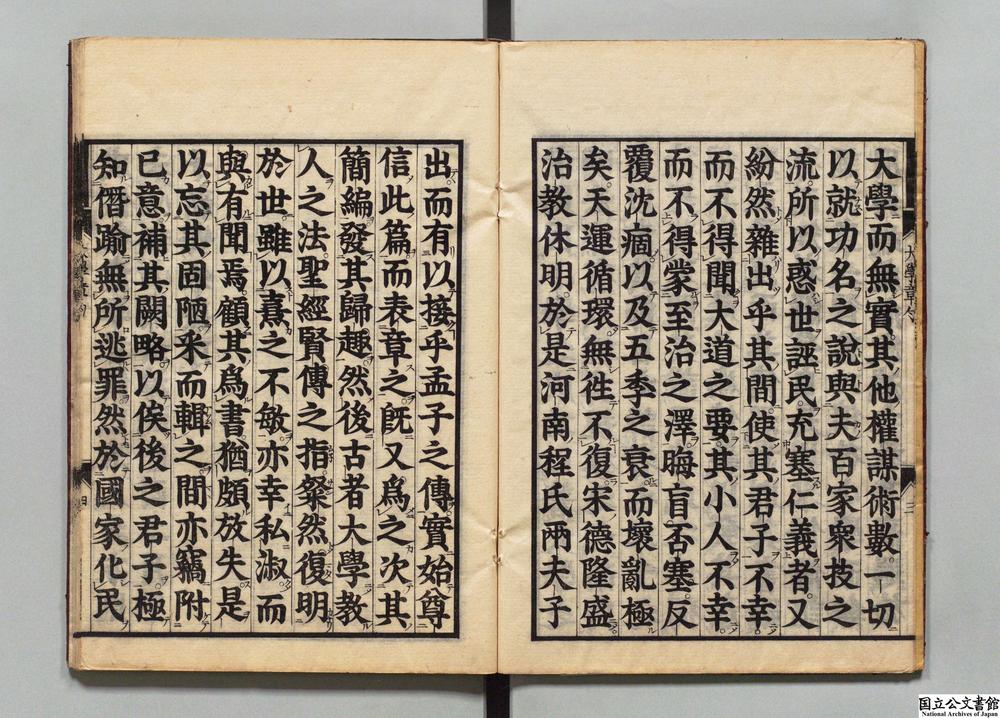 大學而無實其他權謀術數一切
以就功名之說與夫百家衆技之
流所以惑世誣民充塞仁義者又
紛然雜出乎其間使其君子不幸
而不得聞大道之要其小人不幸
而不得蒙至治之澤晦盲否塞反
覆沈痼以及五季之衰而壞亂極
矣天運循環無徃不復宋德隆盛
治教休明於是河南程氏兩夫子
出而有以接乎孟子之傳實始尊
信此篇而表章之旣又爲之次其
簡編發其歸趣然後古者大學教
人之法聖經賢傳之指粲然復明
於世雖以熹之不敏亦幸私淑而
與有聞焉顧其爲書猶頗放失是
以忘其固陋釆而輯之間亦竊附
已意補其闕略以俟後之君子極
知僭踰無所逃罪然於國家化民
大學章句
三
四
国立公文書館
National Archives of Japan